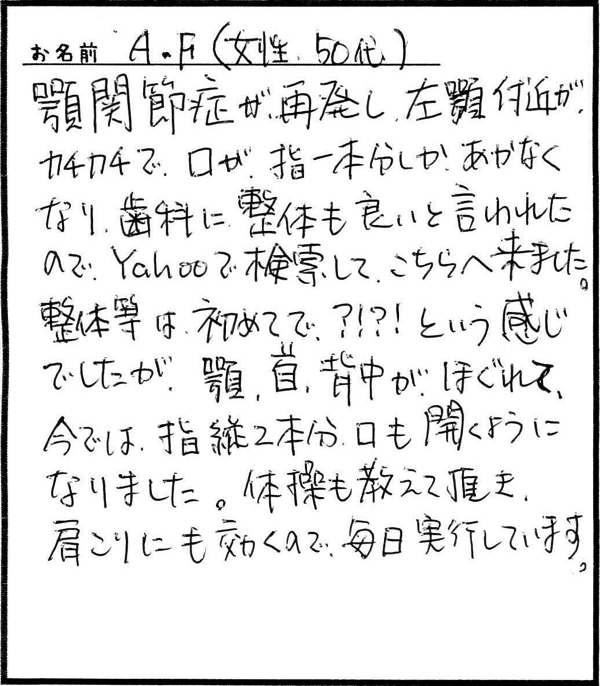 お名前 A.F(女性.50代)
顎関節症が、再発し、左顎付近が、
カチカチで、口が、指一本分しか、あかなく
なり、歯科に、整体も良いと言われた
ので、Yahooで検索して、こちらへ来ました。
整体等は、初めてで、?!?!という感じ
でしたが、顎、首、背中が、ほぐれて、
今では、指縦2本分、口も開くように
なりました。体操も教えて頂き、
肩こりにも効くので、毎日実行しています。